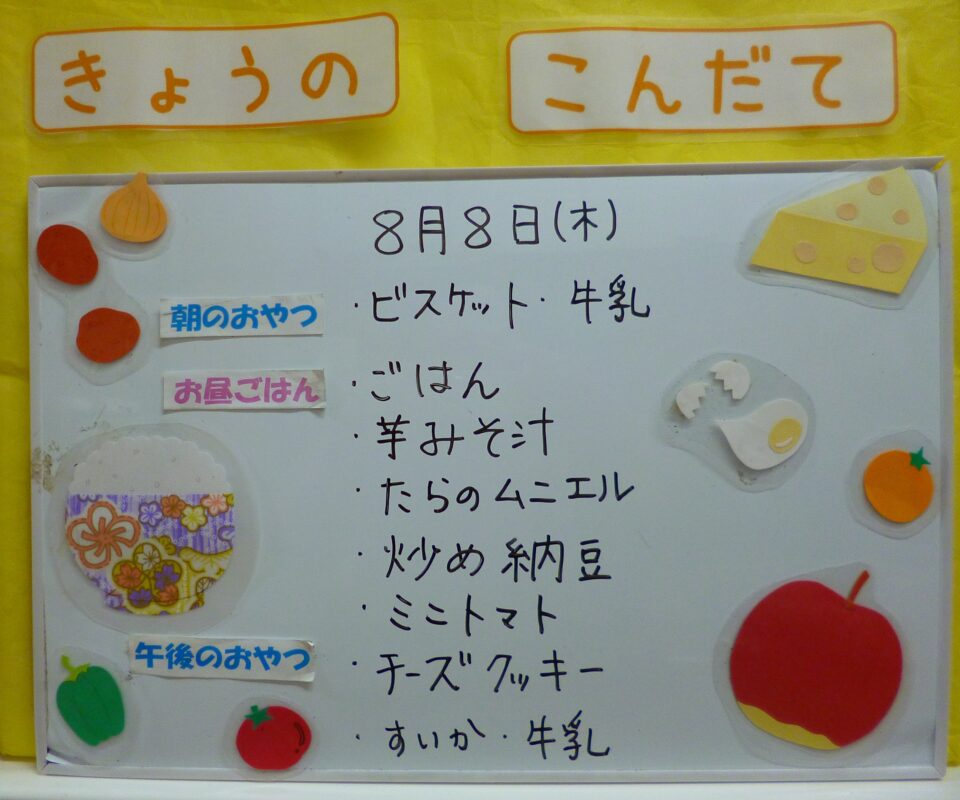 きょうの こんだて
8月8日(木)
朝のおやつ ・ビスケット・牛乳
お昼ごはん ・ごはん
・芋みそ汁
・たらのムニエル
・炒め納豆
・ミニトマト
午後のおやつ ・チーズクッキー
・すいか・牛乳